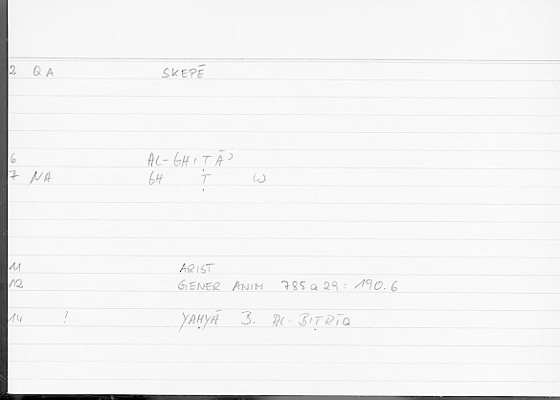 2 QA SKEPĒ
6 AL-GHIṬĀʾ
7 NA GH Ṭ W
11 ARIST
12 GENER ANIM 785a29: 190.6
14 ! YAḤYĀ B. AL-BIṬRĪQ